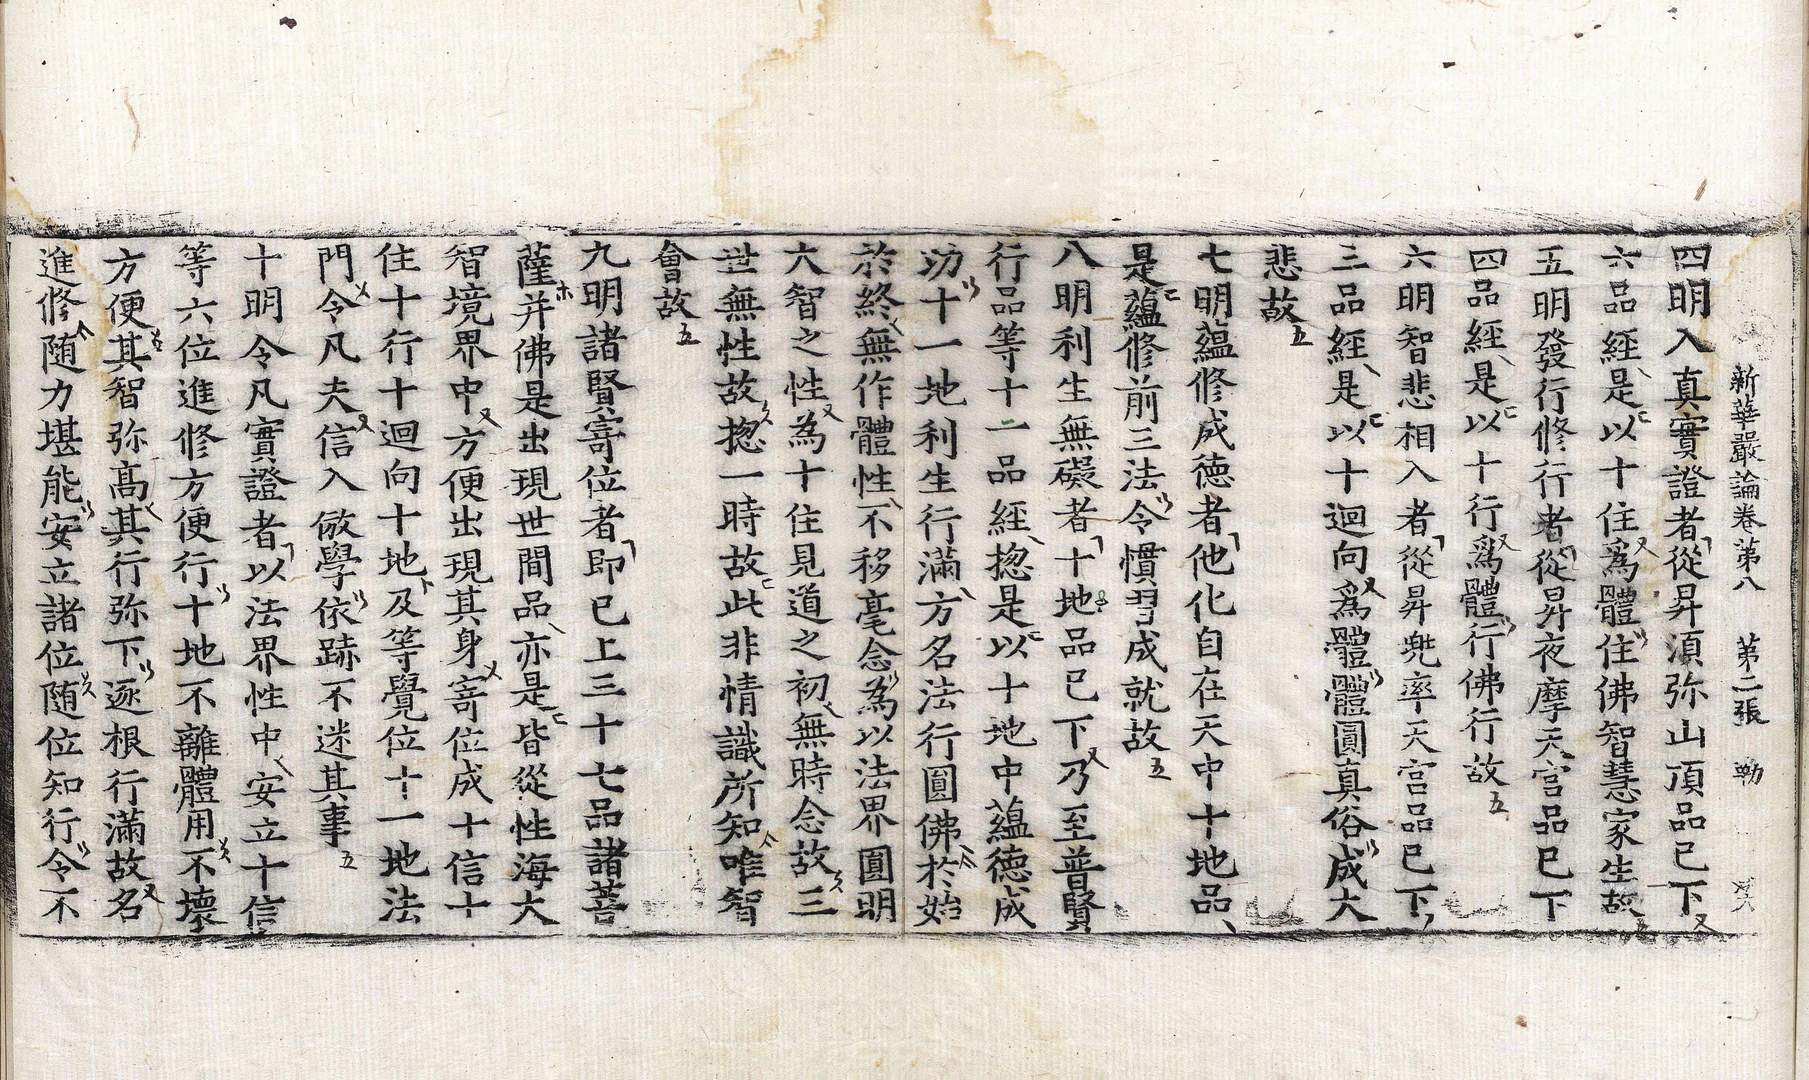 新華嚴論卷第八 第二張 勒
四明入真實證者從昇湏弥山頂品已下
六品經是以十住爲體住佛智慧家生故
五明發行修行者從昇夜摩天宮品已下
四品經是以十行爲體行佛行故
六明智悲相入者從昇兜率天宮品已下
三品經是以十迴向爲體體圓真俗成大
悲故
七明蘊修成德者他化自在天中十地品
是蘊修前三法令慣習成就故
八明利生無礙者十地品已下乃至普賢
行品等十一品經揔是以十地中蘊德成
功十一地利生行滿方名法行圓佛於始
於終無作體性不移毫念為以法界圓明
大智之性為十住見道之初無時念故三
世無性故揔一時故此非情識所知唯智
會故
九明諸賢寄位者即已上三十七品諸菩
薩并佛是出現世間品亦是皆從性海大
智境界中方便出現其身寄位成十信十
住十行十迴向十地及等覺位十一地法
門令凡夫信入倣學依跡不迷其事
十明令凡實證者以法界性中安立十信
等六位進修方便行十地不離體用不壞
方便其智弥髙其行弥下逐根行滿故名
進修随力堪能安立諸位随位知行令不